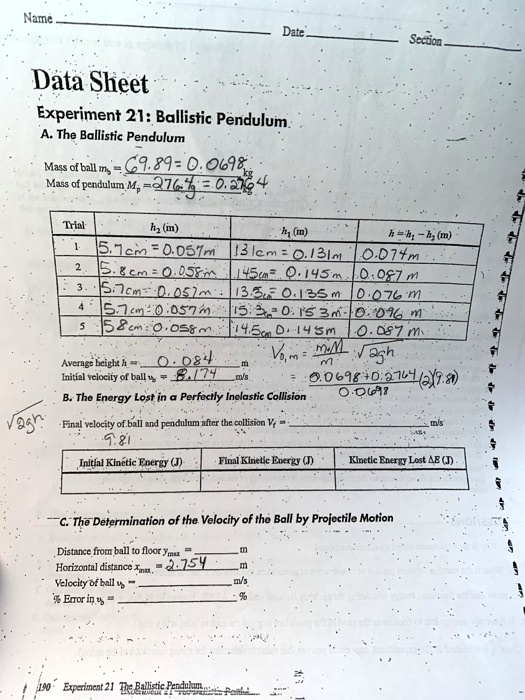 Name
Date
Section
Data Sheet
Experiment 21: Ballistic Pendulum
A. The Ballistic Pendulum
Mass of ball m_b = 69.8g = 0.0698 kg
Mass of pendulum M_p = 276.4g = 0.2764 kg
Trial h₂ (m) h₁ (m) h = h₁ - h₂ (m)
1 5.7cm = 0.057m 13.1cm = 0.131m 0.074m
2 5.8cm = 0.058m 14.5cm = 0.145m 0.087m
3 5.7cm = 0.057m 13.5 = 0.135m 0.076m
4 5.7cm = 0.057m 15.3 = 0.153m 0.096m
5 5.8cm = 0.058m 14.5 0.145m 0.087m
Average height h = 0.084 m
Initial velocity of ball v_b = 8.174 m/s
V₀,m = m+M / m √2gh
0.0698+0.2764 / 0.0698 (2)(9.81)
B. The Energy Lost in a Perfectly Inelastic Collision
√2gh
Final velocity of ball and pendulum after the collision V_f = m/s
9.81
Initial Kinetic Energy (J) Final Kinetic Energy (J) Kinetic Energy Lost ΔE (J)
C. The Determination of the Velocity of the Ball by Projectile Motion
Distance from ball to floor y_max = m
Horizontal distance x_max = 2.754 m
Velocity of ball v_b = m/s
% Error in v_b = %
190 Experiment 21 The Ballistic Pendulum